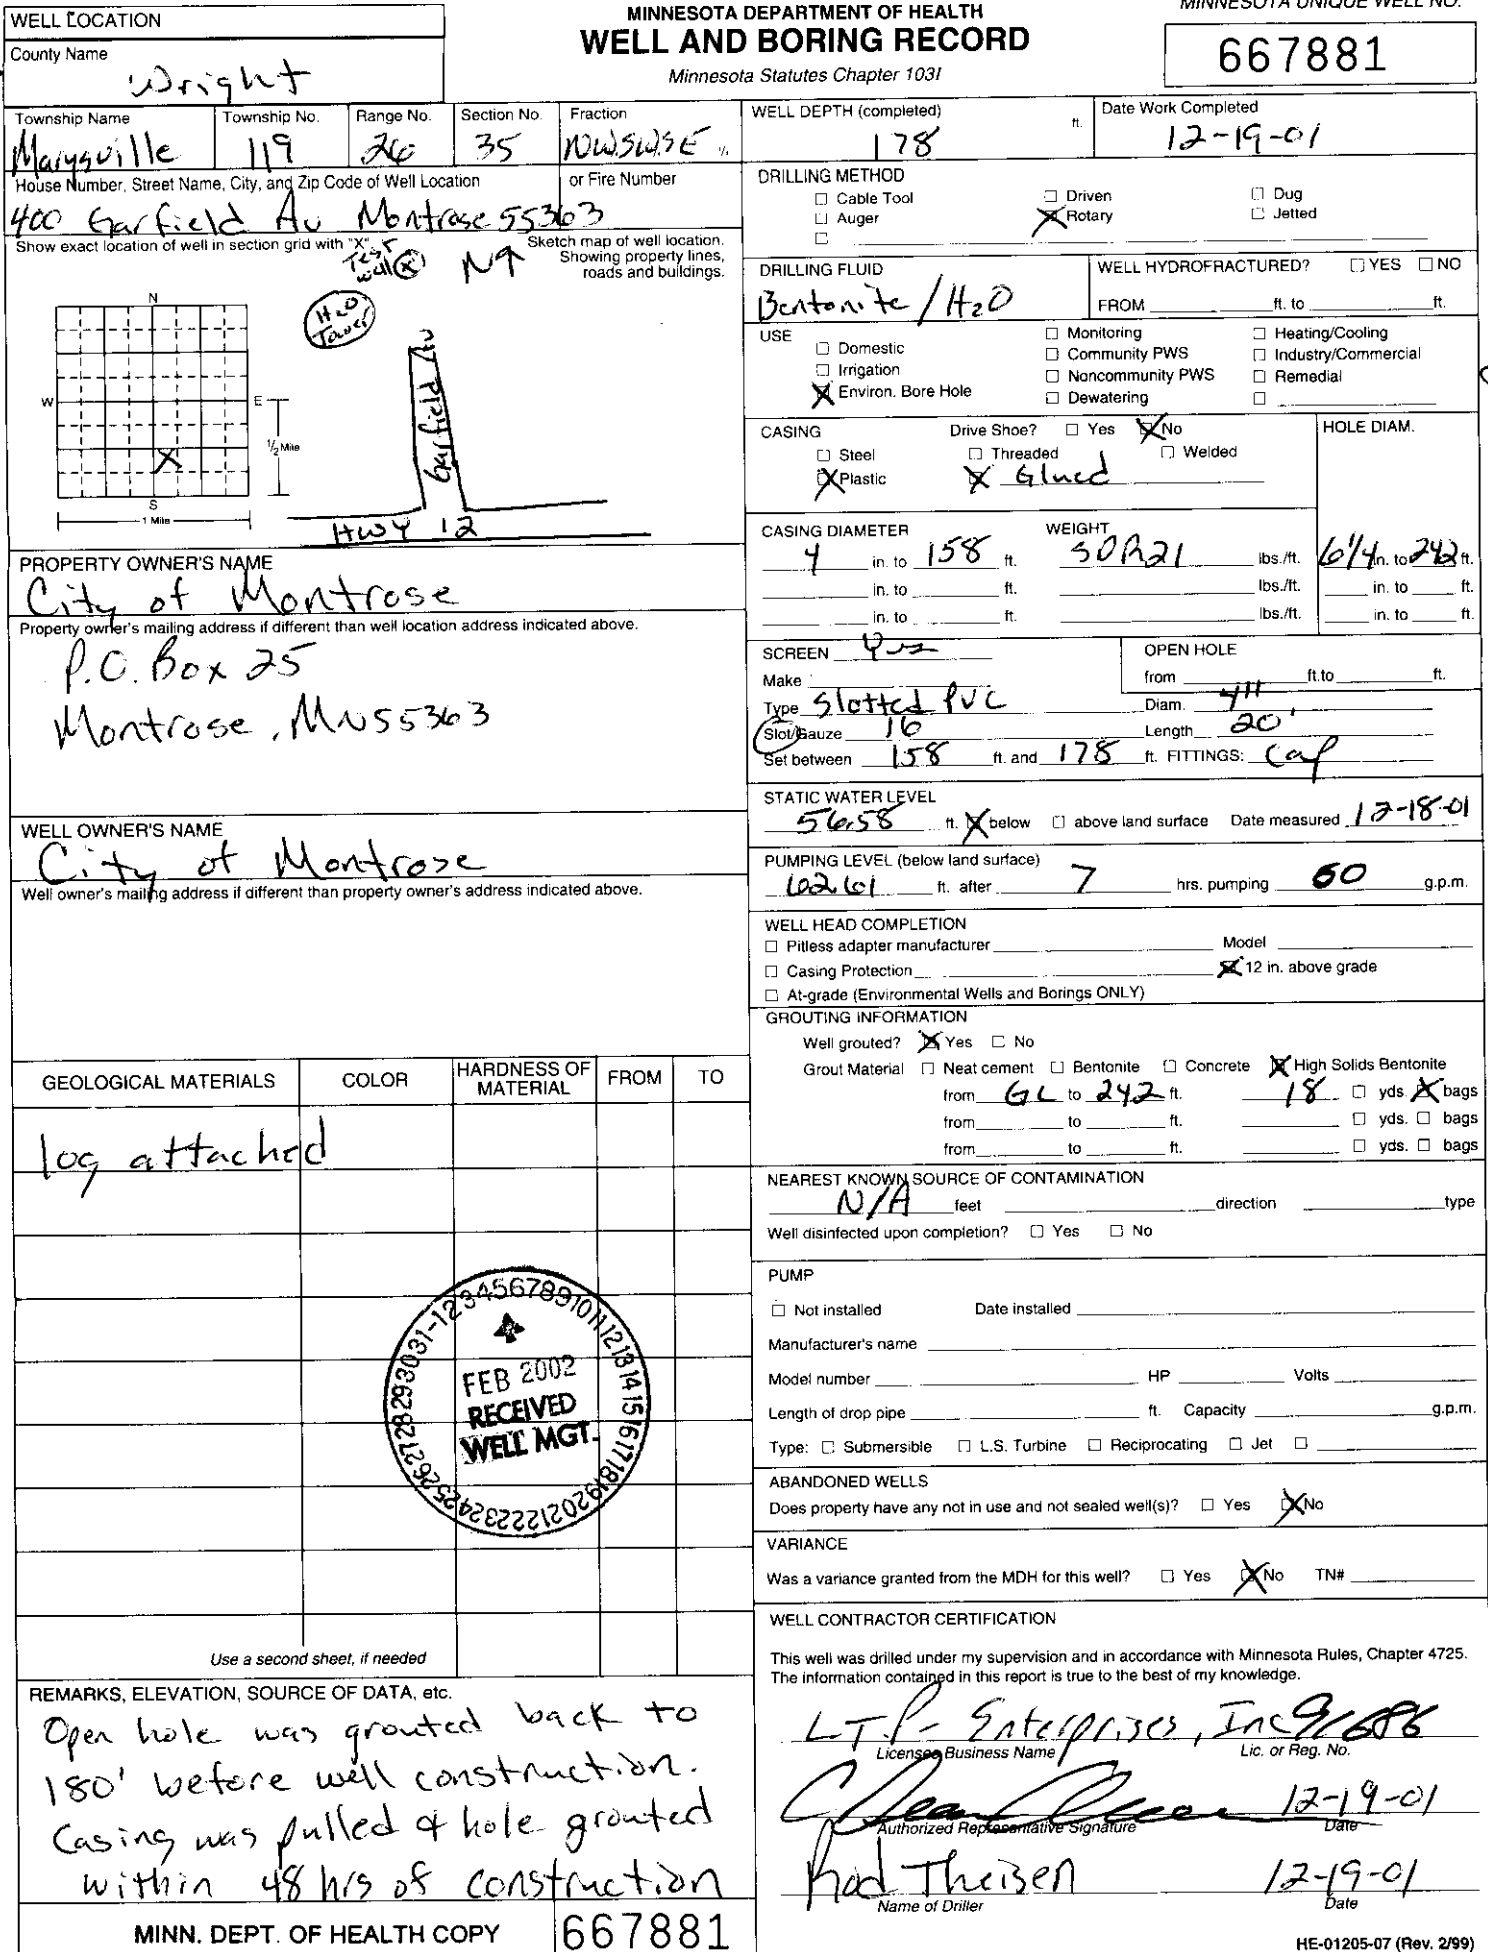 WELL LOCATION
County Name
Wright
MINNESOTA DEPARTMENT OF HEALTH
WELL AND BORING RECORD
Minnesota Statutes Chapter 103I
MINNESOTA UNIQUE WELL NO.
667881
Township Name Township No. Range No. Section No. Fraction
Marysville 119 26 35 NWSWSE ¼
House Number, Street Name, City, and Zip Code of Well Location or Fire Number
400 Garfield Av Montrose 55363
Show exact location of well in section grid with "X".
Sketch map of well location.
Showing property lines,
roads and buildings.
Test
well X
N
H2O
Tower
Garfield Av
HWY 12
N
W E
S
½ Mile
1 Mile
PROPERTY OWNER'S NAME
City of Montrose
Property owner's mailing address if different than well location address indicated above.
P.O. Box 25
Montrose, MN 55363
WELL OWNER'S NAME
City of Montrose
Well owner's mailing address if different than property owner's address indicated above.
GEOLOGICAL MATERIALS COLOR HARDNESS OF MATERIAL FROM TO
log attached
12345678910111213141516171819202122232425262728293031
FEB 2002
RECEIVED
WELL MGT.
Use a second sheet, if needed
REMARKS, ELEVATION, SOURCE OF DATA, etc.
Open hole was grouted back to
180' before well construction.
Casing was pulled & hole grouted
within 48 hrs of construction
MINN. DEPT. OF HEALTH COPY 667881
WELL DEPTH (completed) ft. Date Work Completed
178 12-19-01
DRILLING METHOD
Cable Tool Driven Dug
Auger X Rotary Jetted
DRILLING FLUID
Bentonite / H2O
WELL HYDROFRACTURED? YES NO
FROM ft. to ft.
USE
Domestic Monitoring Heating/Cooling
Irrigation Community PWS Industry/Commercial
X Environ. Bore Hole Noncommunity PWS Remedial
Dewatering
CASING Drive Shoe? Yes X No HOLE DIAM.
Steel Threaded Welded
X Plastic X Glued
CASING DIAMETER WEIGHT
4 in. to 158 ft. SDR21 lbs./ft. 6 1/4 in. to 242 ft.
in. to ft. lbs./ft. in. to ft.
in. to ft. lbs./ft. in. to ft.
SCREEN Yes OPEN HOLE
Make from ft. to ft.
Type Slotted PVC Diam. 4"
Slot/Gauze 16 Length 20'
Set between 158 ft. and 178 ft. FITTINGS: Cap
STATIC WATER LEVEL
56.58 ft. X below above land surface Date measured 12-18-01
PUMPING LEVEL (below land surface)
62.61 ft. after 7 hrs. pumping 60 g.p.m.
WELL HEAD COMPLETION
Pitless adapter manufacturer Model
Casing Protection X 12 in. above grade
At-grade (Environmental Wells and Borings ONLY)
GROUTING INFORMATION
Well grouted? X Yes No
Grout Material Neat cement Bentonite Concrete X High Solids Bentonite
from GL to 242 ft. 18 yds. X bags
from to ft. yds. bags
from to ft. yds. bags
NEAREST KNOWN SOURCE OF CONTAMINATION
N/A feet direction type
Well disinfected upon completion? Yes No
PUMP
Not installed Date installed
Manufacturer's name
Model number HP Volts
Length of drop pipe ft. Capacity g.p.m.
Type: Submersible L.S. Turbine Reciprocating Jet
ABANDONED WELLS
Does property have any not in use and not sealed well(s)? Yes X No
VARIANCE
Was a variance granted from the MDH for this well? Yes X No TN#
WELL CONTRACTOR CERTIFICATION
This well was drilled under my supervision and in accordance with Minnesota Rules, Chapter 4725.
The information contained in this report is true to the best of my knowledge.
LTP-Enterprises, Inc 91686
Licensee Business Name Lic. or Reg. No.
12-19-01
Authorized Representative Signature Date
Rod Theisen 12-19-01
Name of Driller Date
HE-01205-07 (Rev. 2/99)